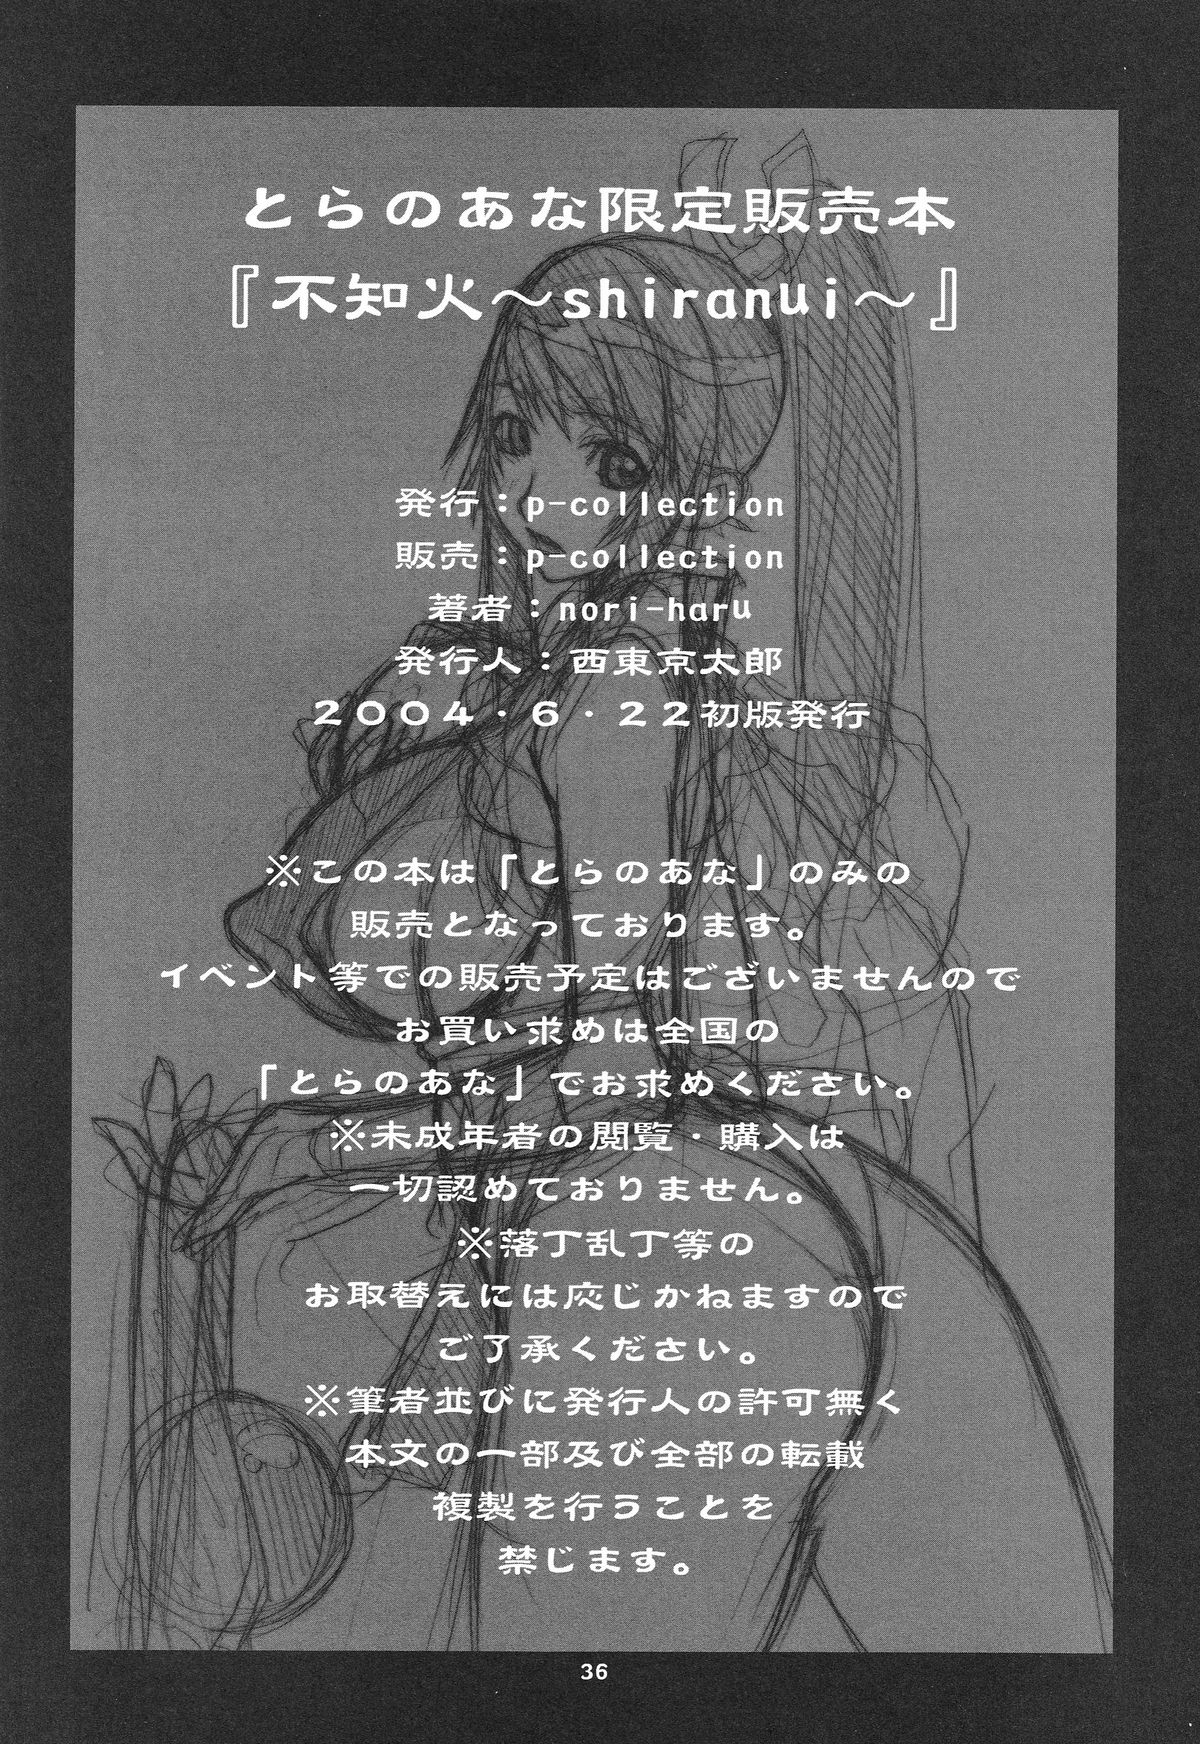 とらのあな限定販売本
『不知火～shiranui～』
発行：p-collection
販売：p-collection
著者：nori-haru
発行人：西東京太郎
２００４・６・２２初版発行
※この本は「とらのあな」のみの
販売となっております。
イベント等での販売予定はございませんので
お買い求めは全国の
「とらのあな」でお求めください。
※未成年者の閲覧・購入は
一切認めておりません。
※落丁乱丁等の
お取替えには応じかねますので
ご了承ください。
※筆者並びに発行人の許可無く
本文の一部及び全部の転載
複製を行うことを
禁じます。
36